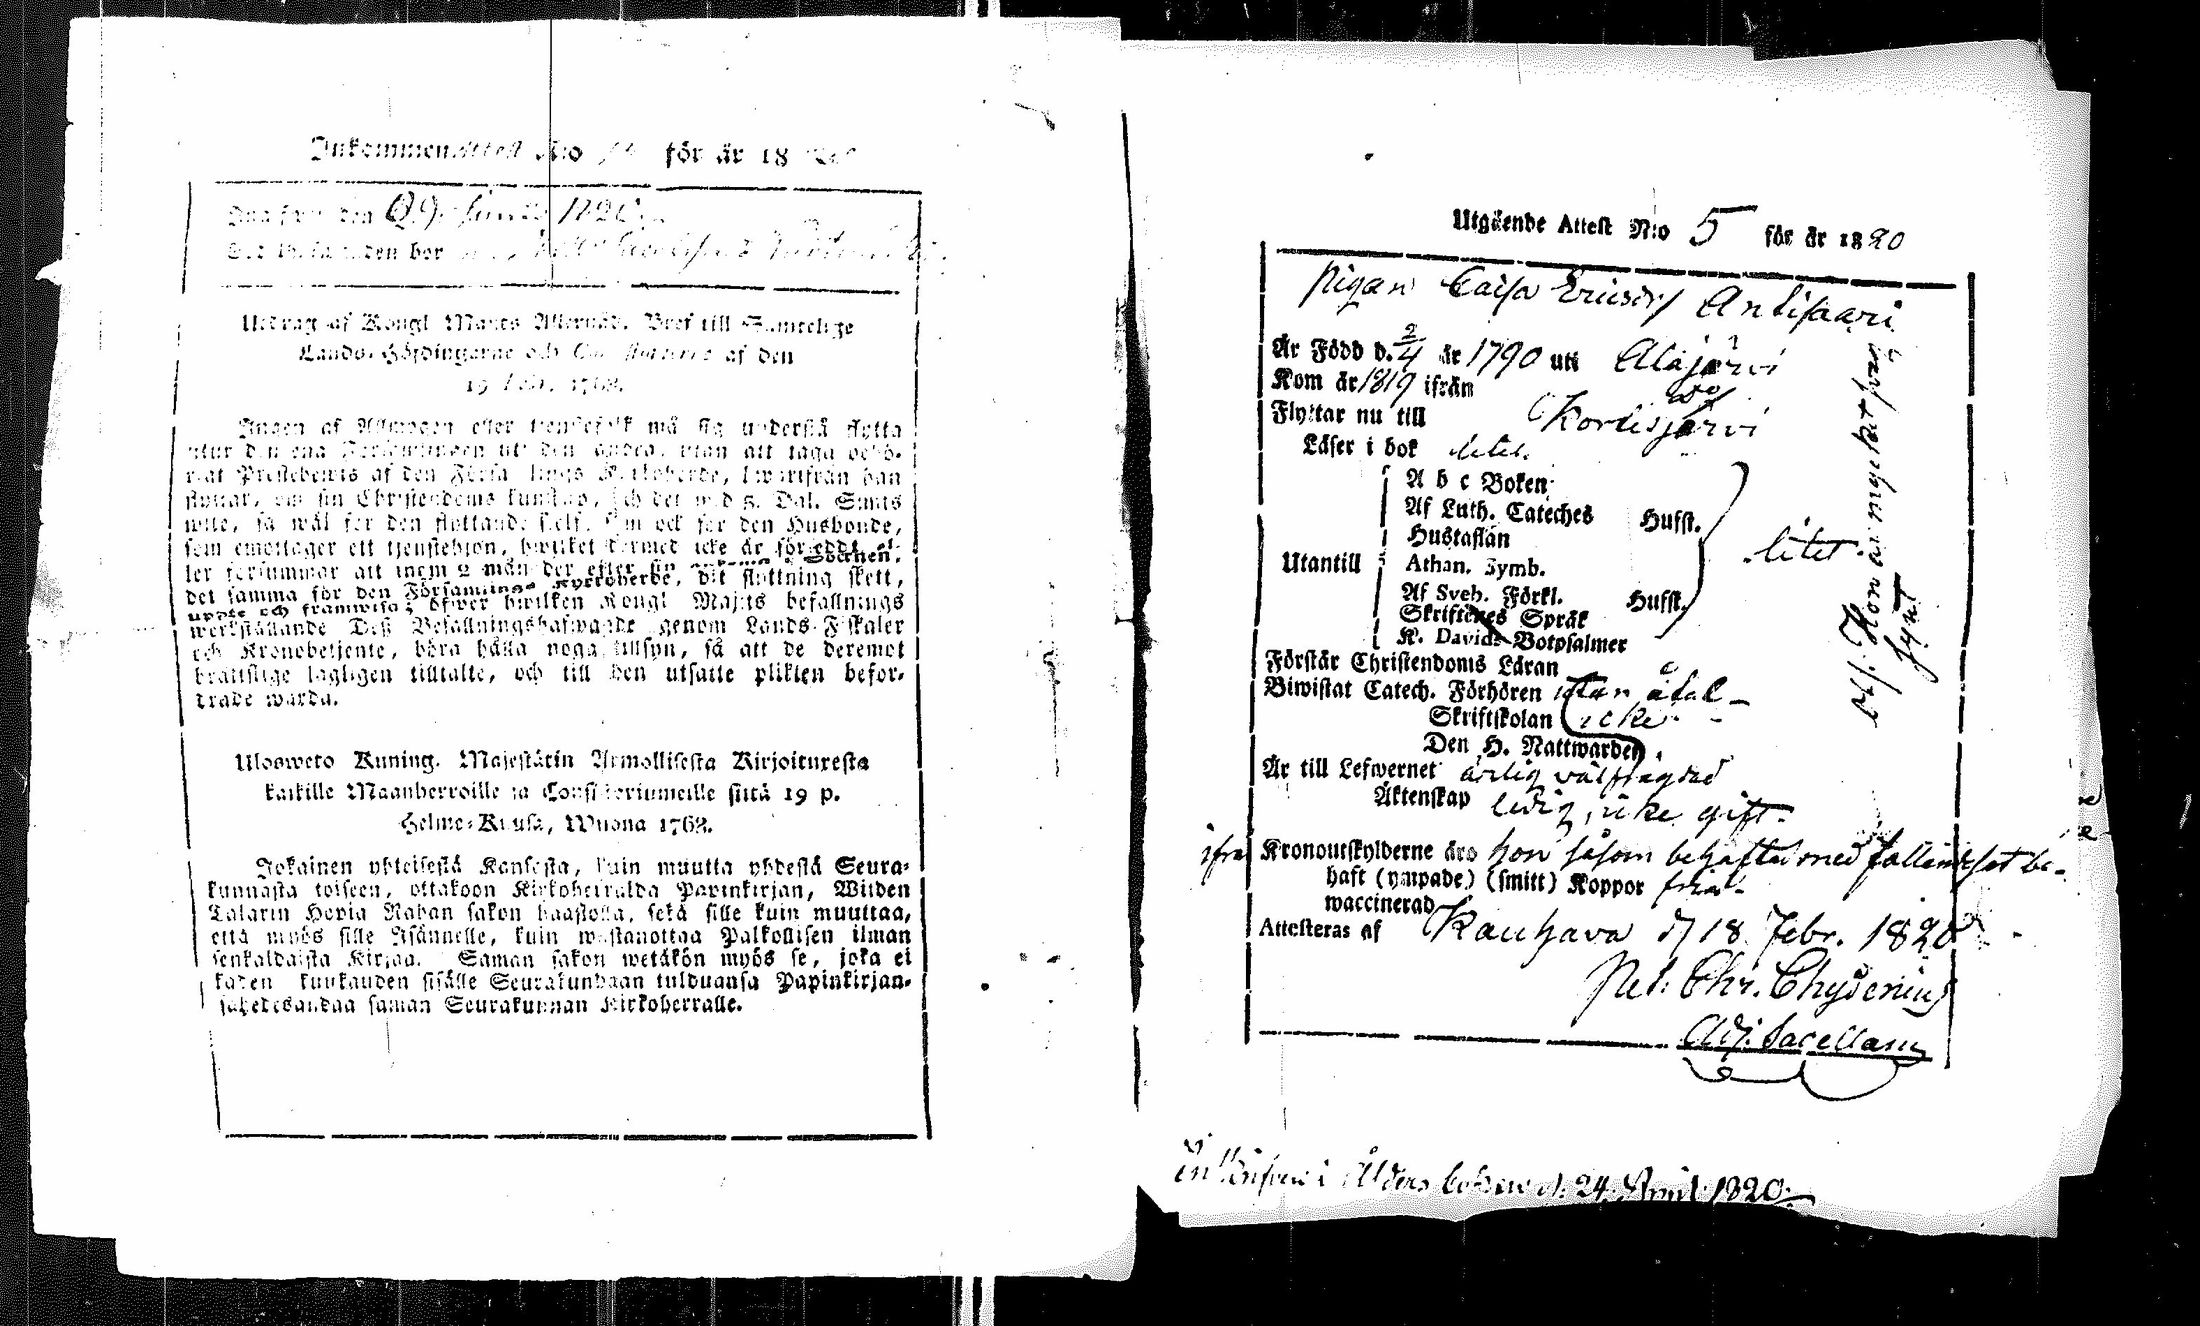 Inkommenattest N:o för år 18
den 29. 1820.
bor
Utdrag af Kongl Majts Allernåd. Bref till Samtelige
Lands-Höfdingarne och af den
19 1768.
Ingen af Allmogen eller tjenstefolk må sig understå flytta
utur den ena Församlingen uti den andra, utan att taga behö-
rigt Prestebewis af den Församlings Kyrkoherde, hwarifrån han
flyttar, om sin Christendoms kunskap, och det wid 5. Dal. Smts
wite, så wäl för den flyttande sjelf, som ock för den Husbonde,
som emottager ett tjenstehjon, hwilket dermed icke är försedt, el-
ler försummar att inom 2 mån der efter sin Socknen,
det samma för den Församlings Kyrkoherde, dit flyttning skett,
uppte och framwisa; öfwer hwilken Kongl Majts befallnings
werkställande Deß Befallningshafwande genom Lands-Fiskaler
och Kronobetjente, böra hålla noga tillsyn, så att de deremot
brottslige lagligen tilltalte, och till den utsatte plikten befor-
drade warda.
Ulosweto Kuning. Majestätin Armollisesta Kirjoituxesta
kaikille Maanherroille ja Consistoriumeille siitä 19 p.
Helme-Kuusa, Wuona 1768.
Jokainen yhteisestä Kansasta, kuin muutta yhdestä Seura-
kunnasta toiseen, ottakoon Kirkoherralda Papinkirjan, Wiiden
Talarin Hopia Rahan sakon haastolla, sekä sille kuin muuttaa,
että myös sille Isännelle, kuin wastanottaa Palkollisen ilman
senkaldaista Kirjaa. Saman sakon wetäkön myös se, joka ei
kahden kuukauden sisälle Seurakundaan tulduansa Papinkirjan-
sa saman Seurakunnan Kirkoherralle.
Utgående Attest N:o 5 för år 1820
Pigan Caisa Ericsdr Antisaari
Är Född d. 2/4 år 1790 uti Alajärvi
Kom år 1819 ifrån do
Flyttar nu till Kortesjärvi
Läser i bok litet.
A b c Boken
Af Luth. Cateches Hufst.
Hustaflan
Utantill Athan. Symb. litet
Af Sveb. Förkl. Hufst.
Skriftenes Språk
K. Davids Botpsalmer
Förstår Christendoms Läran
Biwistat Catech. Förhören utan åtal
Skriftskolan icke
Den H. Nattwarden
Är till Lefwernet ärlig välfrägdad
Äktenskap ledig, icke gift
Kronoutskylderne äro hon såsom behäftad med fallandesot be-
ifrå
haft (ympade) (smitt) Koppor friad
waccinerad
Attesteras af Kauhava d 18 Febr. 1820
Pet: Chr. Chydenius
Adj. Sacellani
obs. Hon är mycket svag
synt
i Ålders boken d. 24 April 1820.